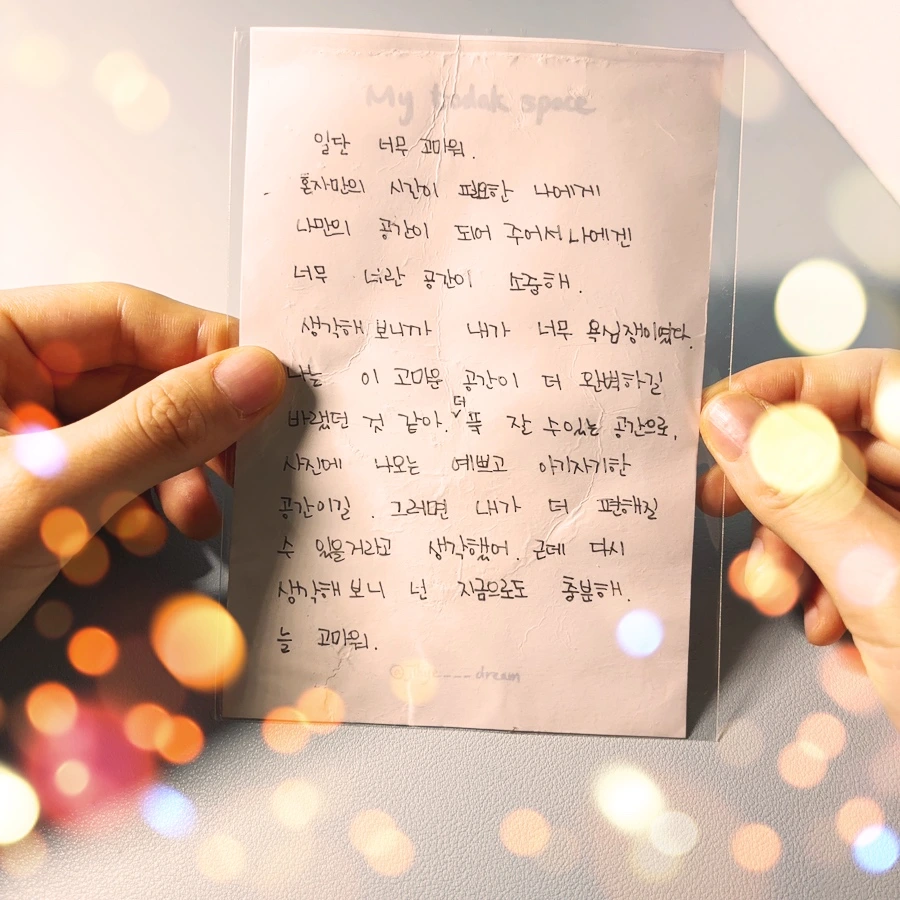 My todak space
일단 너무 고마워.
혼자만의 시간이 필요한 나에게
나만의 공간이 되어 주어서 나에겐
너무 너란 공간이 소중해.
생각해 보니까 내가 너무 욕심쟁이였다.
나는 이 고마운 공간이 더 완벽하길
바랬던 것 같아. 더 푹 잘 수 있는 공간으로,
사진에 나오는 예쁘고 아기자기한
공간이길. 그러면 내가 더 편해질
수 있을거라고 생각했어. 근데 다시
생각해 보니 넌 지금으로도 충분해.
늘 고마워.
dream